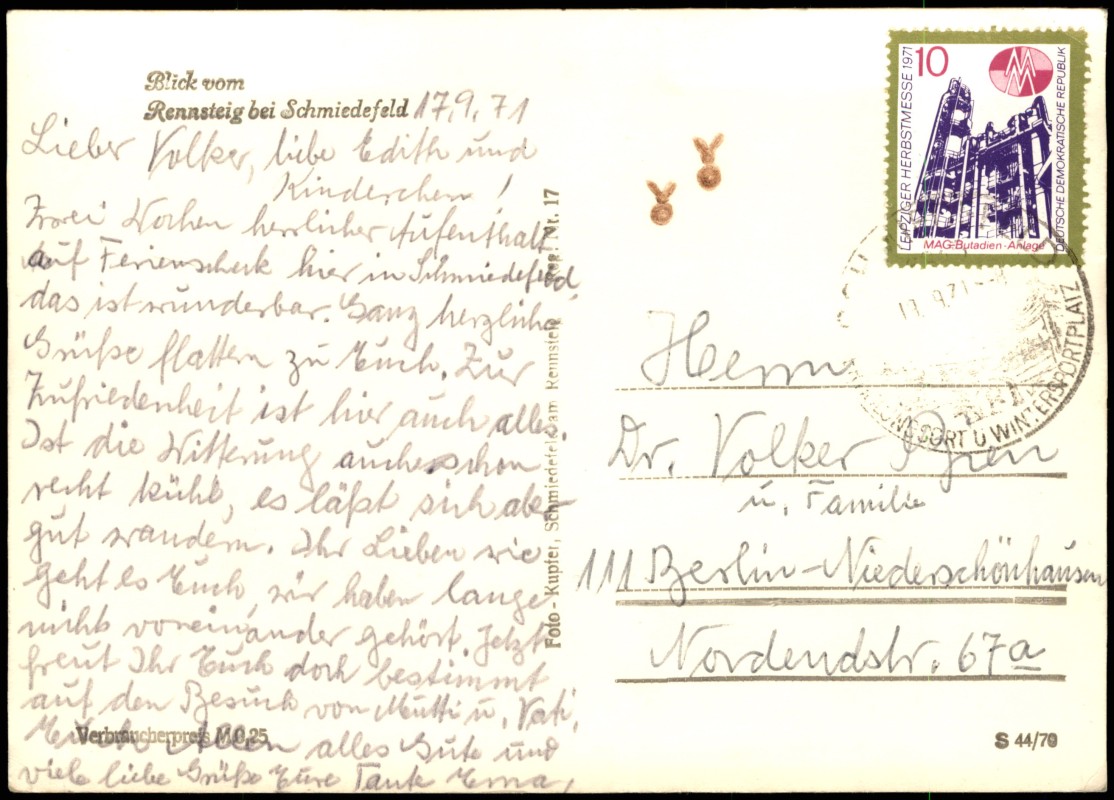 Blick vom
Rennsteig bei Schmiedefeld
17.9.71
Lieber Volker, liebe Edith und
Kinderchen!
Zwei Wochen herrlicher Aufenthalt
auf Ferienscheck hier in Schmiedefeld,
das ist wunderbar. Ganz herzliche
Grüße flattern zu Euch. Zur
Zufriedenheit ist hier auch alles.
Ist die Witterung auch schon
recht kühl, es läßt sich aber
gut wandern. Ihr Lieben wie
geht es Euch, wir haben lange
nichts voneinander gehört. Jetzt
freut Ihr Euch doch bestimmt
auf den Besuch von Mutti u. Vati.
Euch Allen alles Gute und
viele liebe Grüße Eure Tante Erna.
Verbraucherpreis M 0,25
Foto - Kupfer, Schmiedefeld am Rennsteig Nr. 17
LEIPZIGER HERBSTMESSE 1971
10
MM
DEUTSCHE DEMOKRATISCHE REPUBLIK
MAG-Butadien-Anlage
9.71
U WINTERSPORTPLATZ
Herrn
Dr. Volker
u. Familie
111 Berlin-Niederschönhausen
Nordendstr. 67a
S 44/70